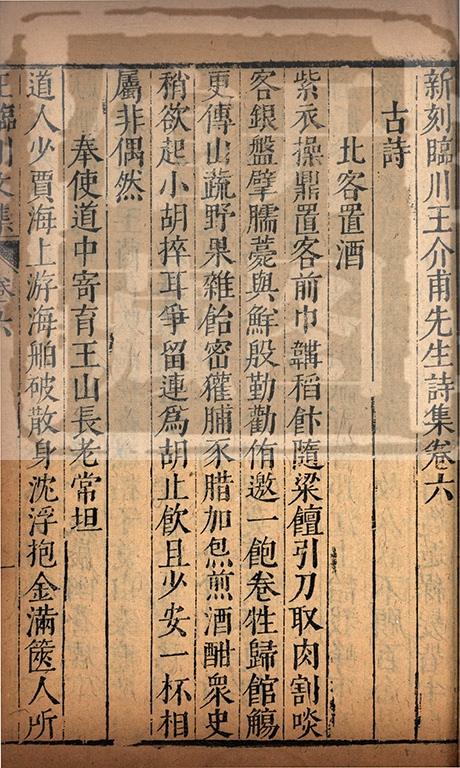 新刻臨川王介甫先生詩集卷六
古詩
北客置酒
紫衣操鼎置客前巾韝稻飰隨梁饘引刀取肉割啖
客銀盤擘臑薧與鮮殷勤勸侑邀一飽卷牲歸館觴
更傳山蔬野果雜飴密獾脯豕腊加炰煎酒酣衆史
稍欲起小胡捽耳爭留連爲胡止飲且少安一杯相
屬非偶然
奉使道中寄育王山長老常坦
道人少賈海上游海舶破散身沈浮抱金滿篋人所
王臨川文集 卷六 一